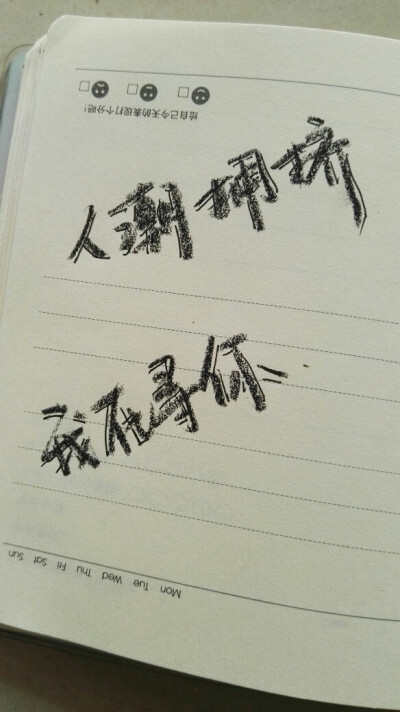 给自己今天的表现打个分吧！
人潮拥挤
我在寻你
Mon Tue Wed Thu Fri Sat Sun